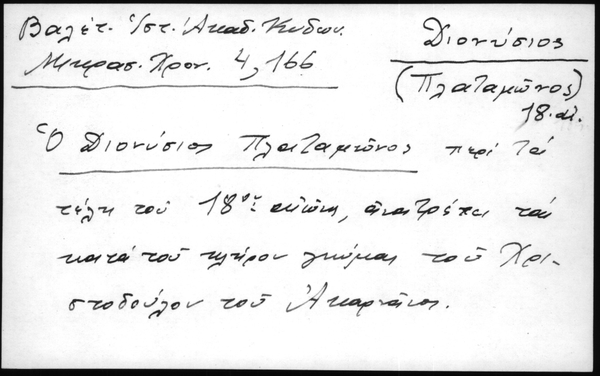 Βαλέτ. Ἱστ. Ἀκαδ. Κυδων.
Μικρασ. Χρον. 4, 166
Διονύσιος
(Πλαταμῶνος)
18. αἰ.
Ὁ Διονύσιος Πλαταμῶνος περὶ τὰ
τέλη τοῦ 18ου αἰῶνος, ἀνατρέπει τὰς
κατὰ τοῦ κλήρου γνώμας τοῦ Χρι-
στοδούλου τοῦ Ἀκαρνᾶνος.